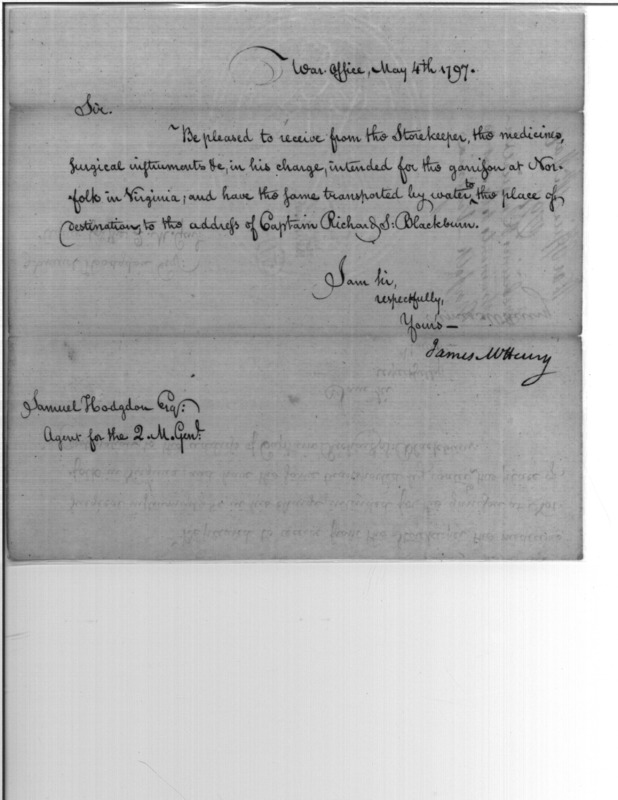 War Office, May 4th 1797.
Sir.
Be pleased to receive from the Storekeeper, the medicines,
surgical instruments &c, in his charge, intended for the garrison at Nor-
folk in Virginia; and have the same transported by water to the place of
destination, to the address of Captain Richard S: Blackburn.
I am Sir,
respectfully,
Yours—
James McHenry
Samuel Hodgdon Esq:
Agent for the Q. M. Genl.